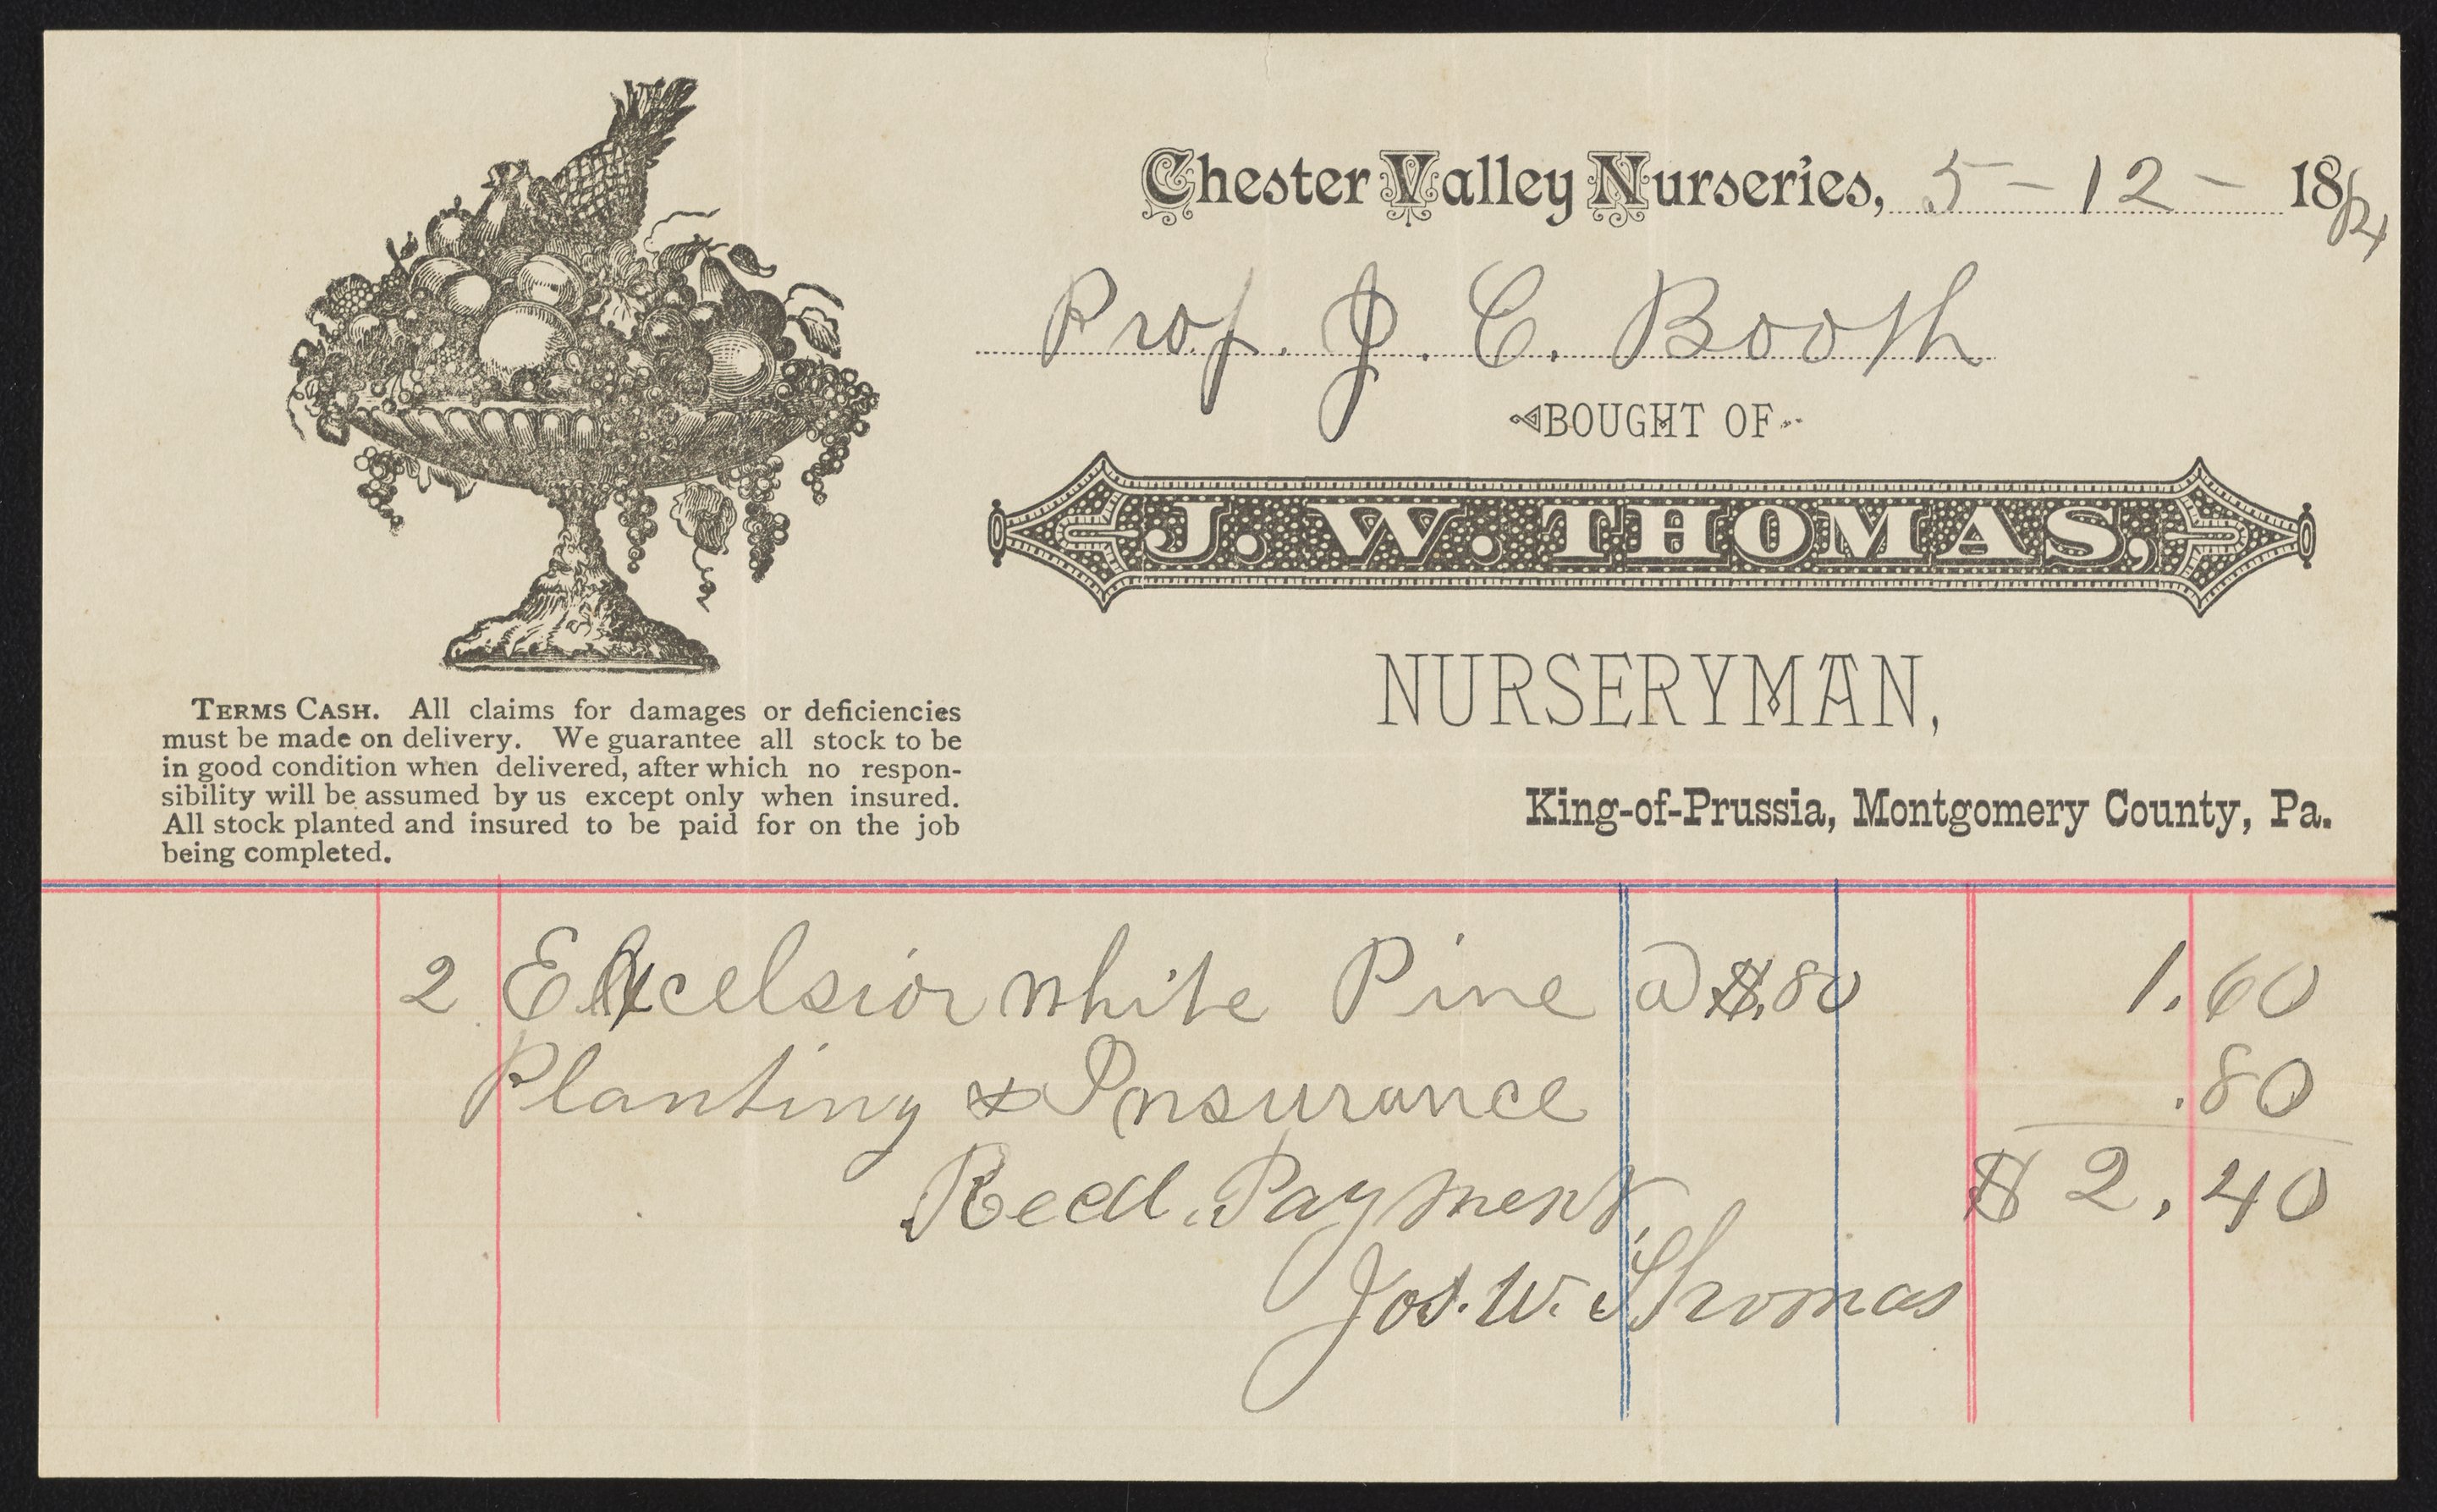 Chester Valley Nurseries, 5-12- 1884
Prof. J. C. Booth
BOUGHT OF
J. W. THOMAS,
NURSERYMAN,
King-of-Prussia, Montgomery County, Pa.
TERMS CASH. All claims for damages or deficiencies
must be made on delivery. We guarantee all stock to be
in good condition when delivered, after which no respon-
sibility will be assumed by us except only when insured.
All stock planted and insured to be paid for on the job
being completed.
2 Excelsior white Pine @ $.80 1.60
Planting & Insurance .80
Recd. Payment $2.40
Jos. W. Thomas